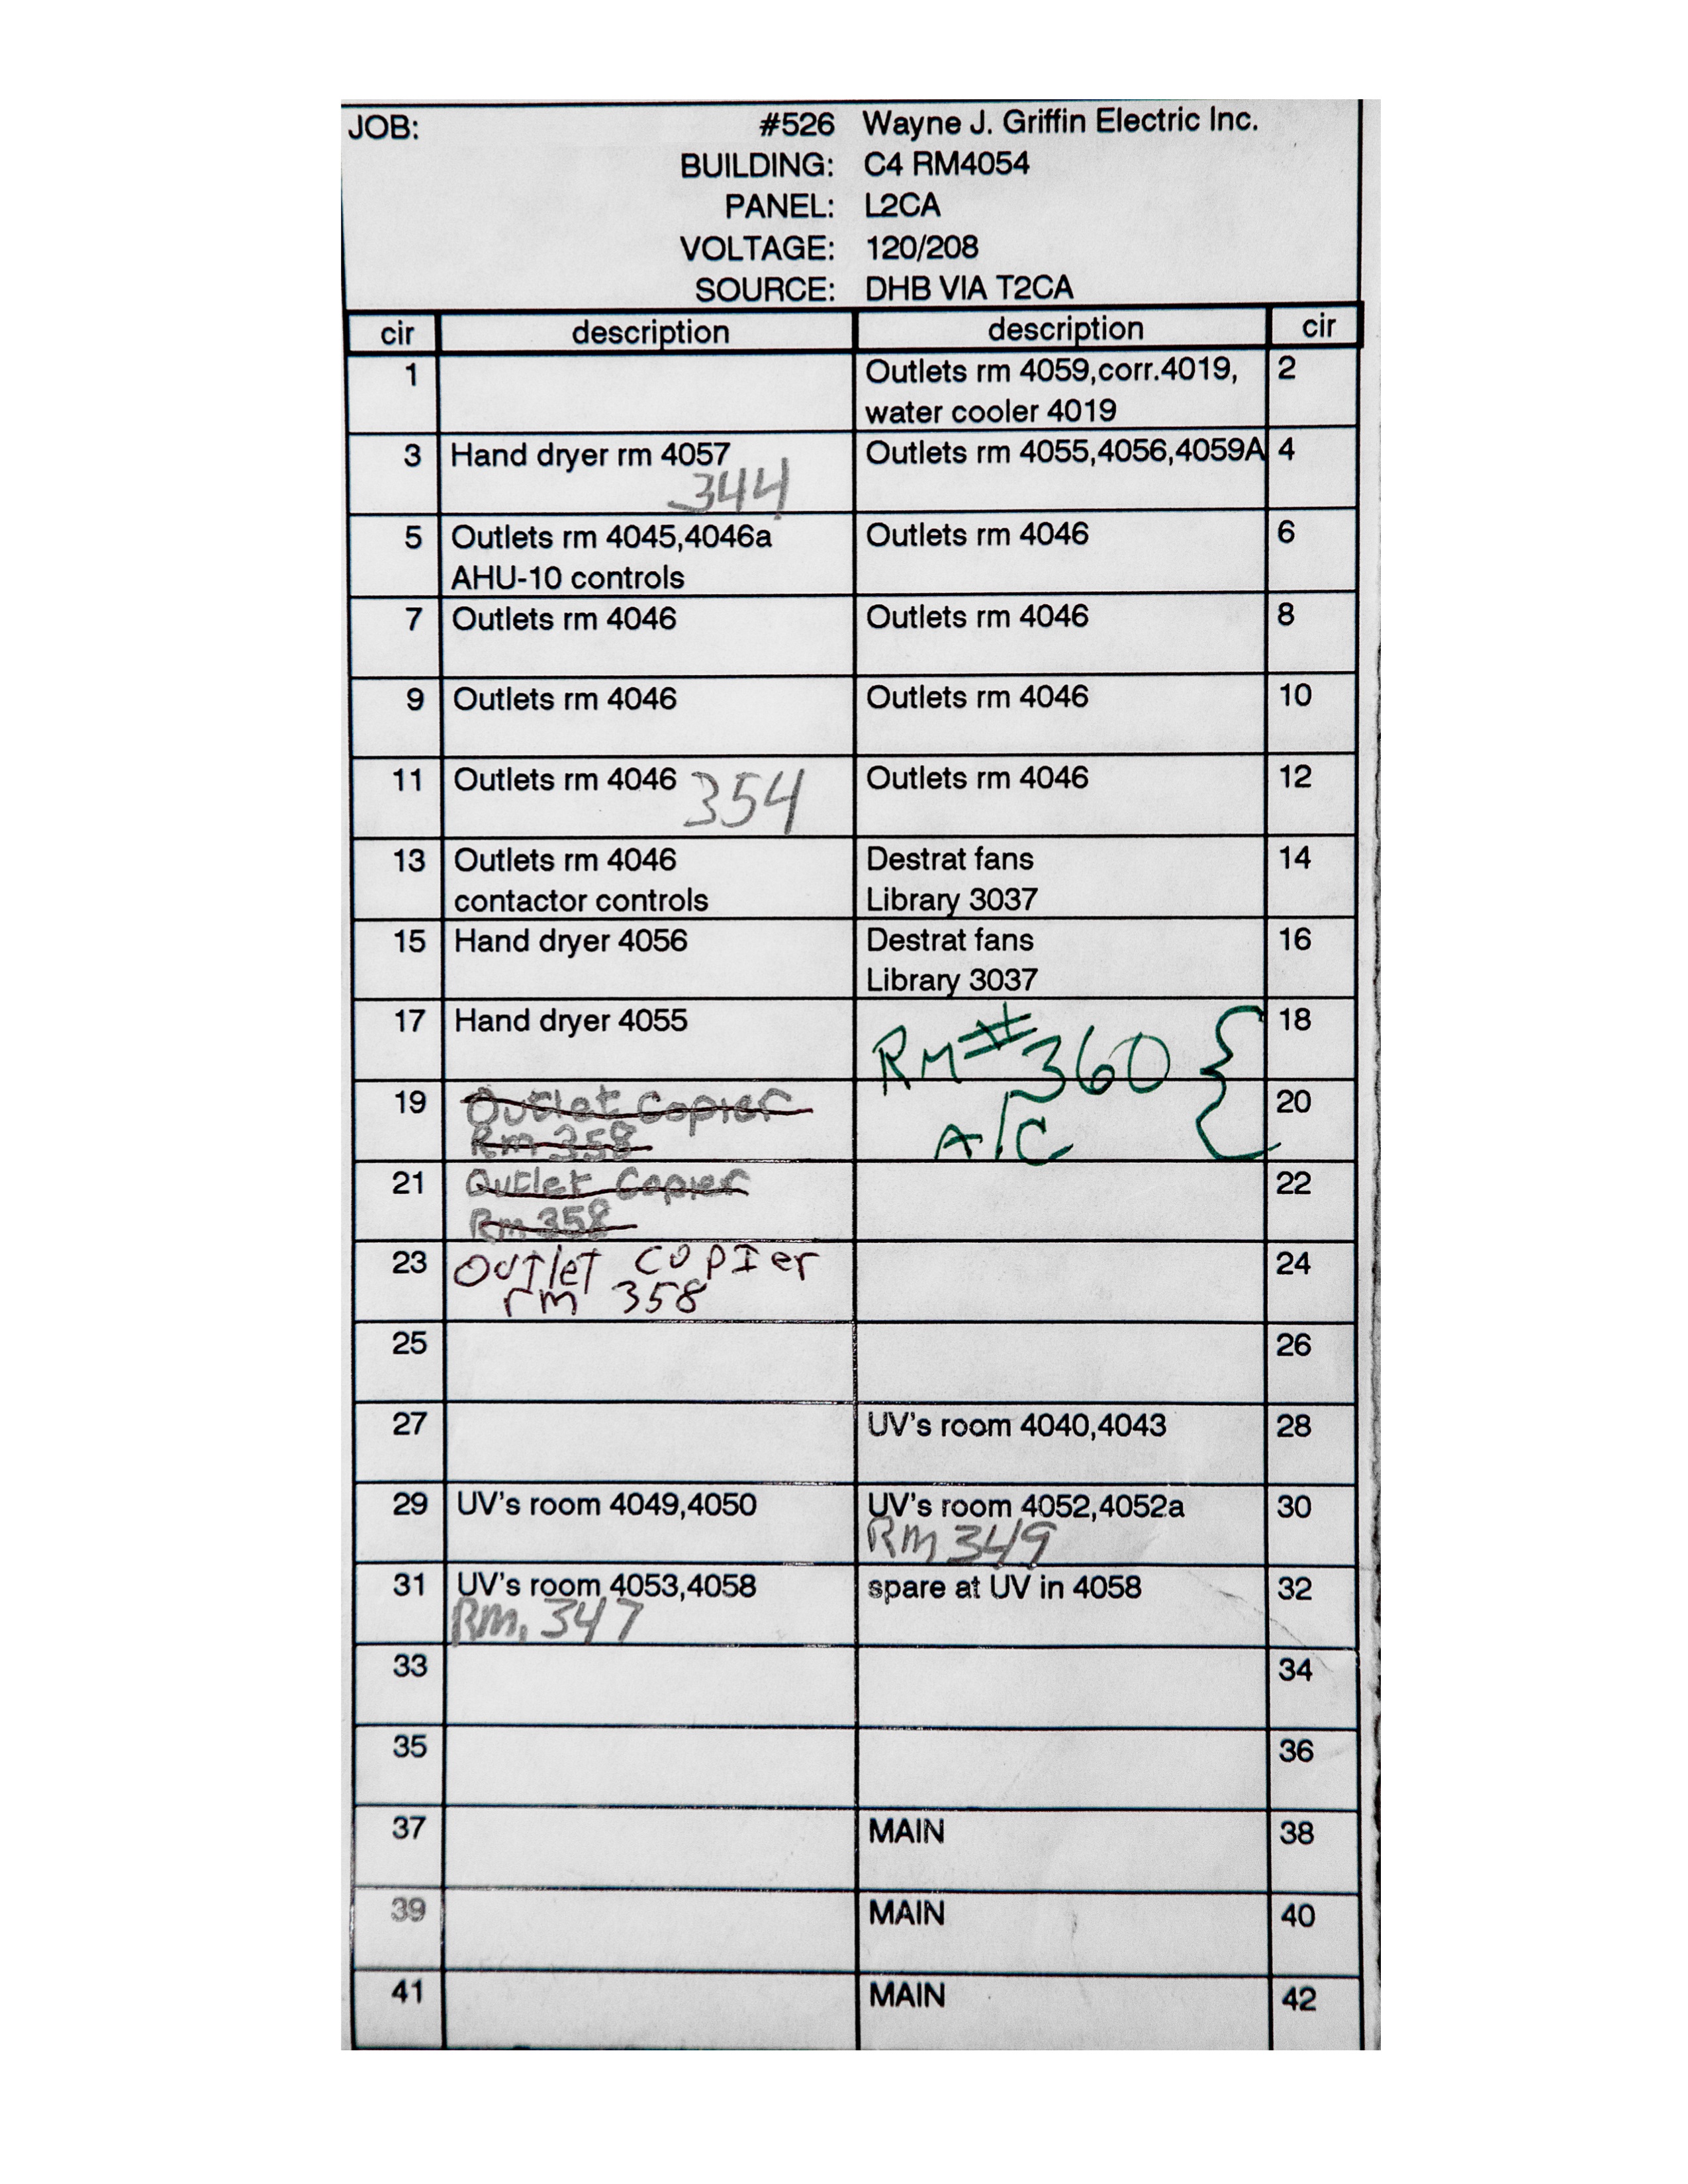 JOB: #526 Wayne J. Griffin Electric Inc.
BUILDING: C4 RM4054
PANEL: L2CA
VOLTAGE: 120/208
SOURCE: DHB VIA T2CA
cir description description cir
1 Outlets rm 4059,corr.4019, 2
water cooler 4019
3 Hand dryer rm 4057 Outlets rm 4055,4056,4059A 4
344
5 Outlets rm 4045,4046a Outlets rm 4046 6
AHU-10 controls
7 Outlets rm 4046 Outlets rm 4046 8
9 Outlets rm 4046 Outlets rm 4046 10
11 Outlets rm 4046 354 Outlets rm 4046 12
13 Outlets rm 4046 Destrat fans 14
contactor controls Library 3037
15 Hand dryer 4056 Destrat fans 16
Library 3037
17 Hand dryer 4055 Rm # 360 { 18
19 Outlet Copier A/C 20
Rm 358
21 Outlet Copier 22
Rm 358
23 OUTlet COPIer 24
rm 358
25 26
27 UV's room 4040,4043 28
29 UV's room 4049,4050 UV's room 4052,4052a 30
Rm 349
31 UV's room 4053,4058 spare at UV in 4058 32
Rm. 347
33 34
35 36
37 MAIN 38
39 MAIN 40
41 MAIN 42